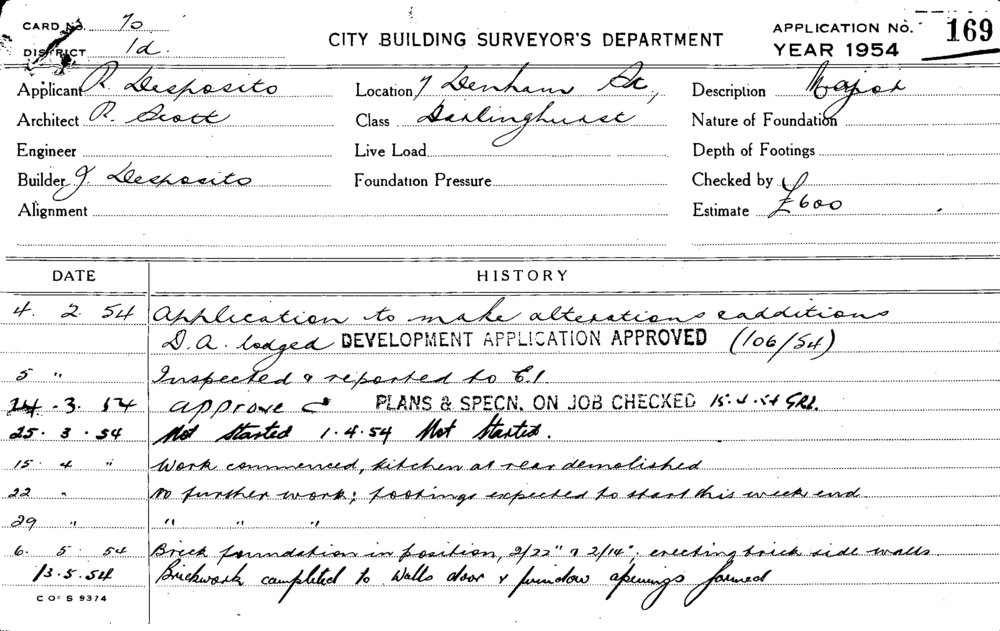 CARD No. 70
DISTRICT 1d.
CITY BUILDING SURVEYOR'S DEPARTMENT
APPLICATION No. 169
YEAR 1954
Applicant R. Desposito
Location 7 Denham St.,
Description Major
Architect R. Scott
Class Darlinghurst
Nature of Foundation
Engineer
Live Load
Depth of Footings
Builder J. Desposito
Foundation Pressure
Checked by
Alignment
Estimate £600
DATE HISTORY
4. 2. 54 Application to make alterations & additions
D.A. lodged DEVELOPMENT APPLICATION APPROVED (106/54)
5 " Inspected & reported to C.I.
24. 3. 54 approve PLANS & SPECN. ON JOB CHECKED 15.4.54
25. 3. 54 Not Started 1.4.54 Not Started.
15. 4 " Work commenced, kitchen at rear demolished
22 " No further work; footings expected to start this week end
29 " " " "
6. 5. 54 Brick foundation in position, 2/22" & 2/14". erecting brick side walls
13.5.54 Brickwork completed to walls door & window openings formed
C OF S 9374